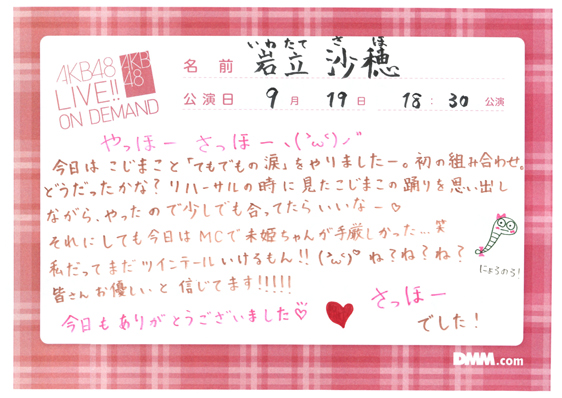 AKB48
LIVE!!
ON DEMAND
AKB
48
いわたて さ ほ
名前 岩立 沙穂
公演日 9月 19日 18:30 公演
やっほー さっほー、(˙ω˙)ノ"
今日は こじまこと「てもでもの涙」をやりましたー。初の組み合わせ。
どうだったかな？ リハーサルの時に見たこじまこの踊りを思い出し
ながら、やったので少しでも合ってたらいいなー♡
それにしても今日はMCで未姫ちゃんが手厳しかった...笑
私だってまだツインテールいけるもん!! (˙ω˙)♡ ね？ね？ね？
にょろのろ!
皆さんお優しいと信じてます!!!!!
今日もありがとうございました♡
さっほー
でした!
DMM.com